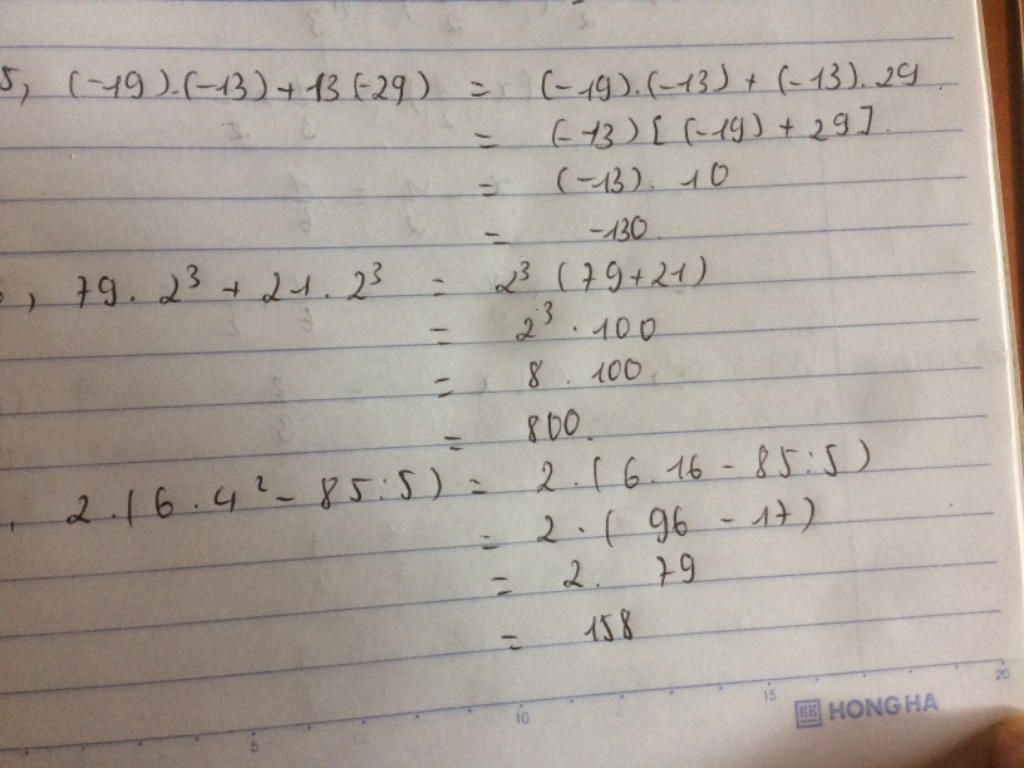 5, (-19).(-13) + 13(-29) = (-19).(-13) + (-13).29
= (-13) [ (-19) + 29 ].
= (-13). 10
= -130.
, 79. 2³ + 21. 2³ = 2³ (79+21)
= 2³ . 100
= 8 . 100
= 800.
. 2.(6.4² - 85:5) = 2.(6.16 - 85:5)
= 2.( 96 - 17)
= 2. 79
= 158
5 10 15 20
HH HONG HA